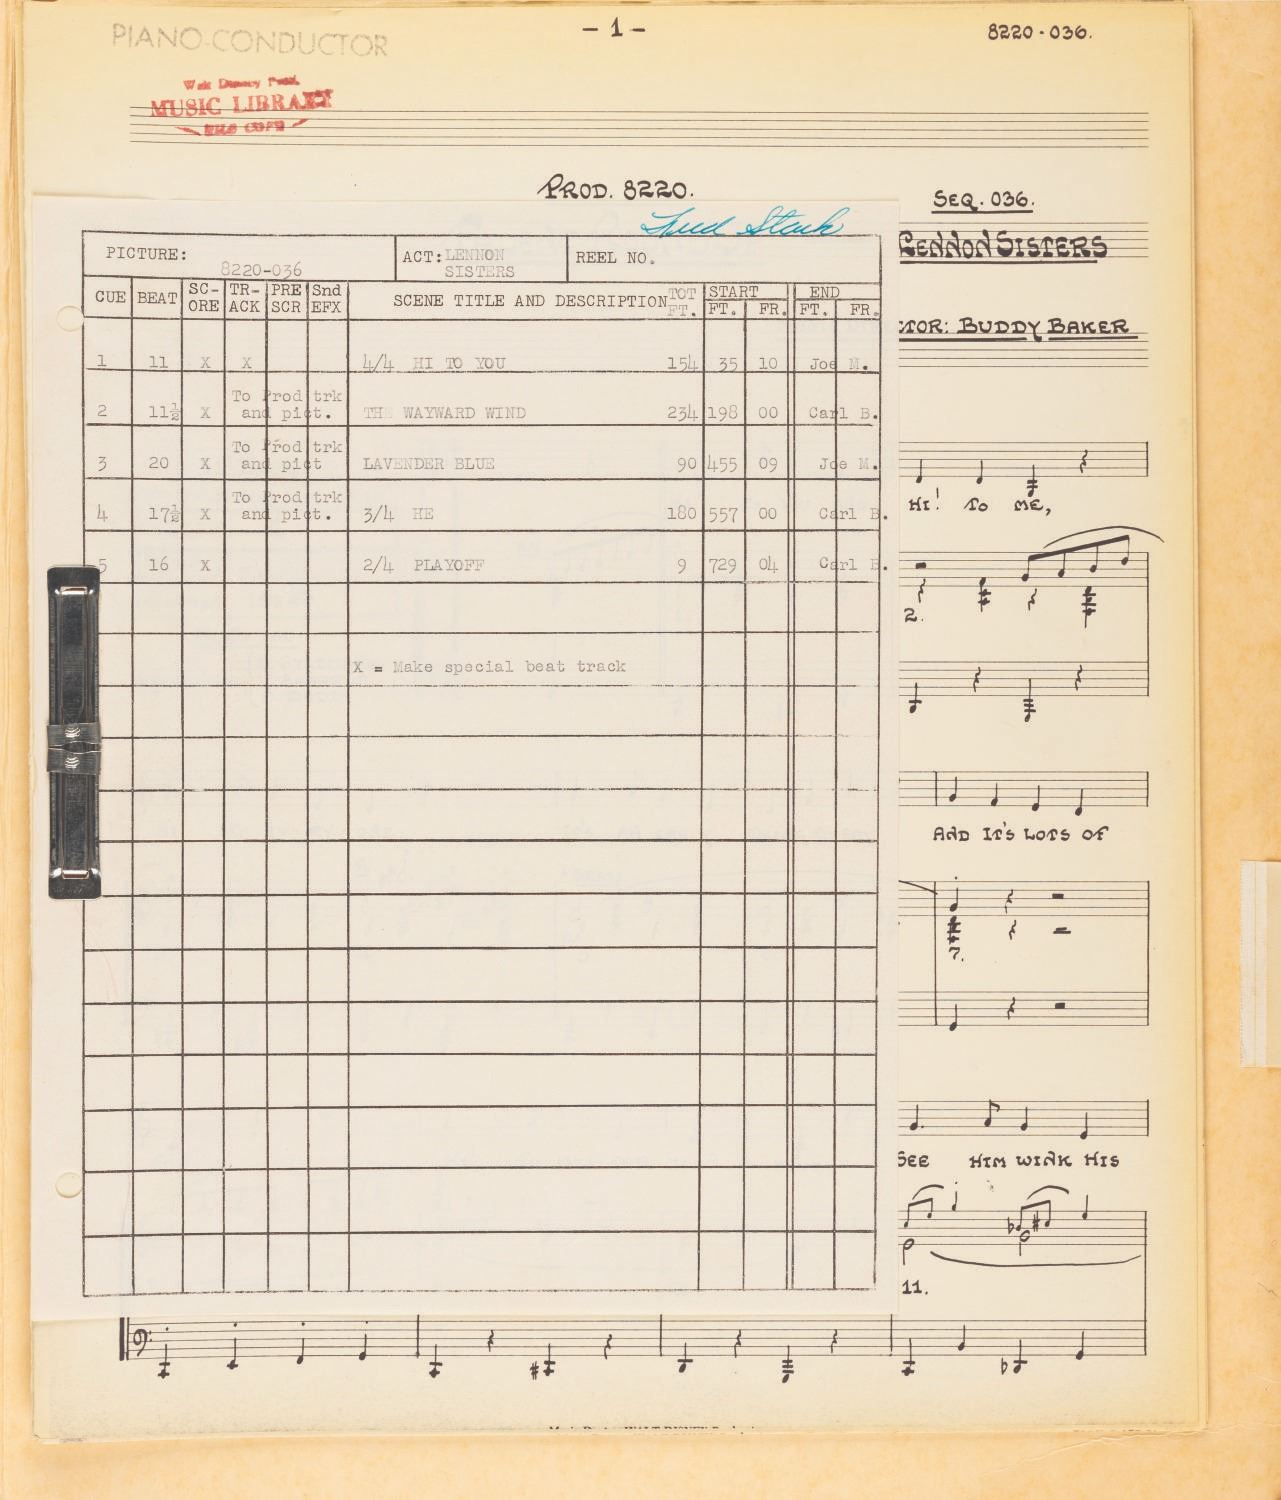 PIANO-CONDUCTOR
– 1 –
8220-036.
MUSIC LIBRARY
PROD. 8220.
SEQ. 036.
LENNON SISTERS
TOR: BUDDY BAKER
PICTURE: 8220-036 ACT: LENNON SISTERS REEL NO.
CUE BEAT SC-ORE TR-ACK PRE SCR Snd EFX SCENE TITLE AND DESCRIPTION TOT FT. START FT. FR. END FT. FR.
1 11 X X 4/4 HI TO YOU 154 35 10 Joe M.
2 11½ X To Prod trk and pict. THE WAYWARD WIND 234 198 00 Carl B.
3 20 X To Prod trk and pict LAVENDER BLUE 90 455 09 Joe M.
4 17½ X To Prod trk and pict. 3/4 HE 180 557 00 Carl B.
5 16 X 2/4 PLAYOFF 9 729 04 Carl B.
X = Make special beat track
HI! TO ME,
2.
AND IT'S LOTS OF
7.
SEE HIM WINK HIS
11.